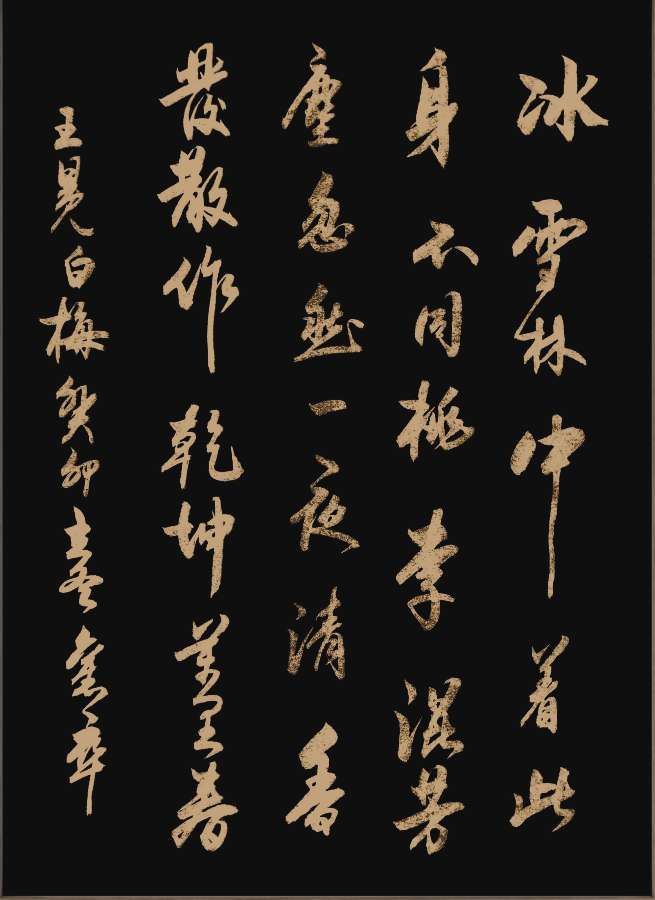 冰雪林中着此
身不同桃李混芳
塵忽然一夜清香
發散作乾坤萬里春
王冕白梅癸卯